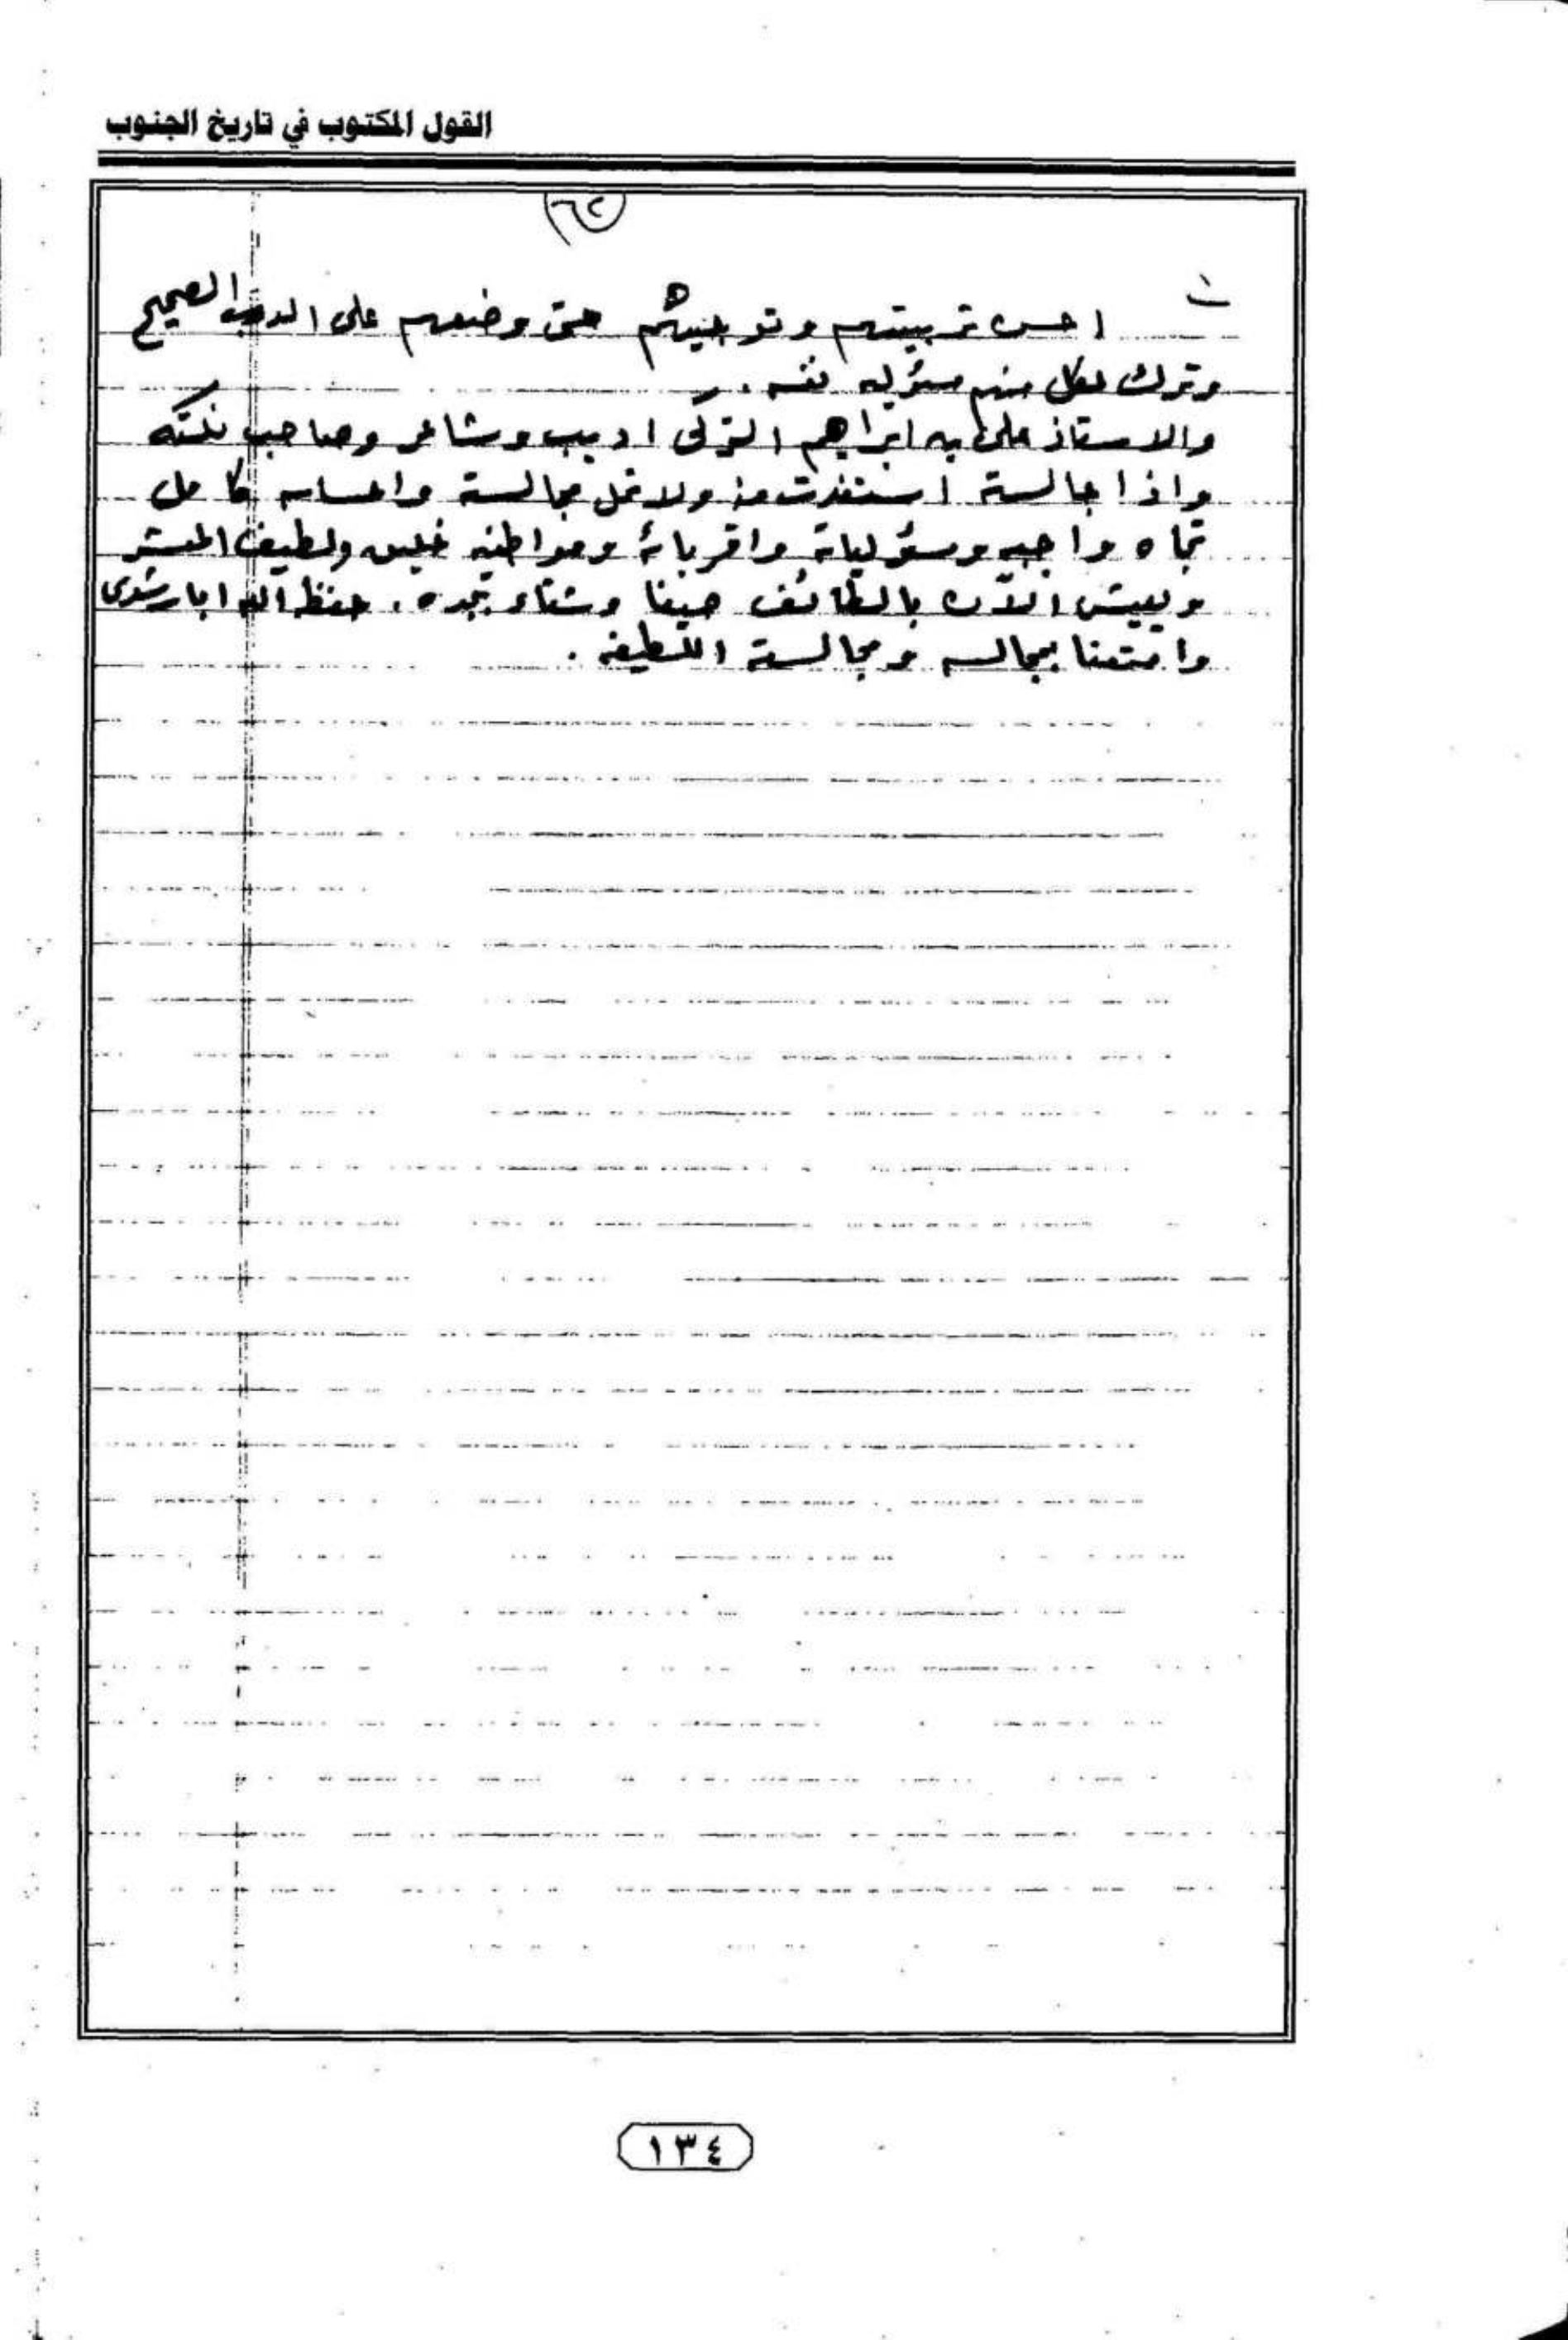 القول المكتوب في تاريخ الجنوب
٦٢
احسن تربيتهم وتوجيههم حتى وضعهم على الدرب الصحيح
وترك لكل منهم مسؤليه نفسه .
والاستاذ على بن ابراهيم التركى اديب وشاعر وصاحب نكته
واذا جالسته استفدت منه ولا تمل مجالسته واحساسه كامل
تجاه واجبه ومسؤلياته واقربائه ومواطنيه خليق ولطيف المعشر
ويعيش الآن بالطائف صيفا وشتاء بجده . حفظ الله ابا رشدى
وامتعنا بمجالسه ومجالسته اللطيفه .
١٣٤